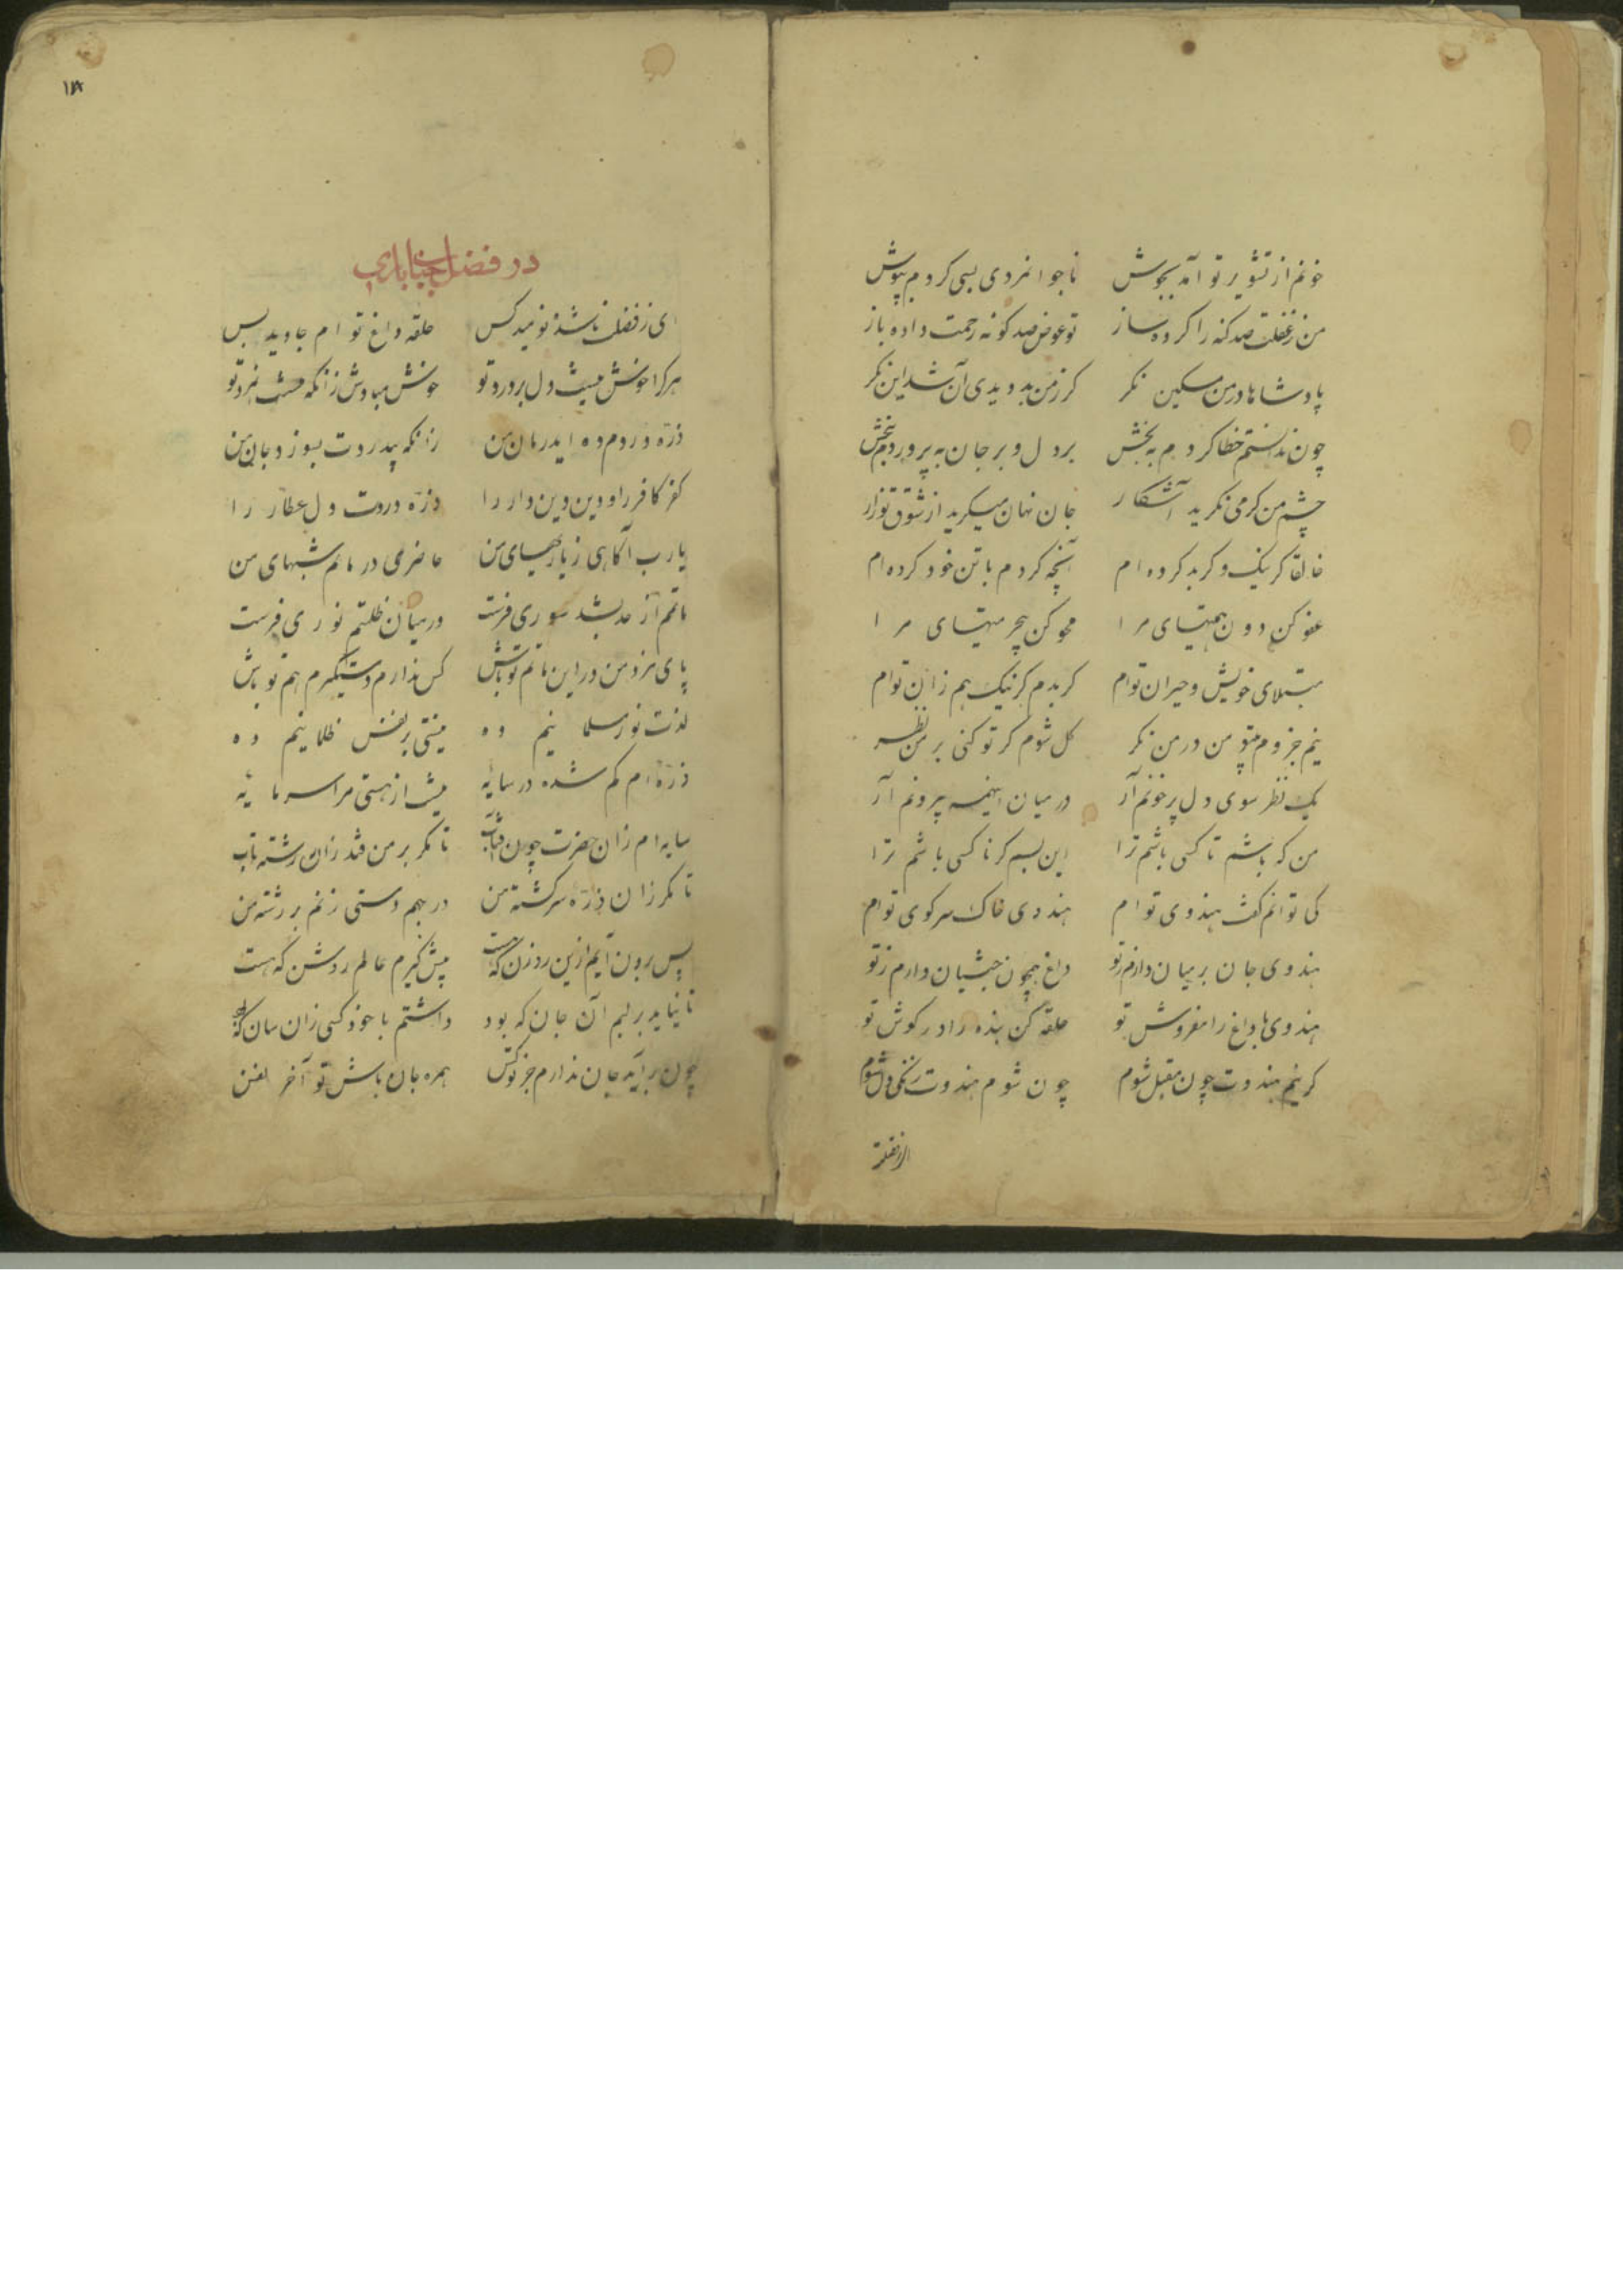 خونم از تشویر تو آمد بجوش ناجوانمردی بسی کردم بپوش
من ز غفلت صد کنه را کرده ساز تو عوض صد کونه رحمت داده باز
پادشاها در من مسکین نکر کر ز من بد دیدی آن شد این نکر
چون ندانستم خطا کردم به بخش بر دل و بر جان پر دردم بخش
چشم من کر می نکرید آشکار جان نهان میکرید از شوق تو زار
خالقا کر نیک و کر بد کرده ام آنچه کردم با تن خود کرده ام
عفو کن دون همتیهای مرا محو کن بیحرمتیهای مرا
مبتلای خویش و حیران توام کر بدم کر نیک هم زان توام
نیم جزوم بیتو من در من نکر کل شوم کر تو کنی بر من نظر
یک نظر سوی دل پر خونم آر در میان اینهمه بیرونم آر
من که باشم تا کسی باشم ترا این بسم کر ناکسی باشم ترا
کی توانم کفت هندوی توام هندوی خاک سر کوی توام
هندوی جان بر میان دارم ز تو داغ همچون حبشیان دارم ز تو
هندوی با داغ را مفروش تو حلقه کن بنده را در کوش تو
کر نیم هندوت چون مقبل شوم چون شوم هندوت زنکی دل شوم
ای ز فضلت
۱۱۸
در فضل جناب باری
ای ز فضلت ناشده نومید کس حلقه داغ توام جاوید بس
هر کرا خوش نیست دل بر درد تو خوش مبادش زانکه نیست مرد تو
ذره دردم ده ای درمان من زانکه بیدردت بسوزد جان من
کفر کافر را و دین دین دار را ذره دردت دل عطار را
یا رب آکاهی ز یاربهای من حاضری در ماتم شبهای من
ماتم از حد بشد سوری فرست در میان ظلمتم نوری فرست
پای مزد من در این ماتم تو باش کس ندارم دستکیرم هم تو باش
لذت نور مسلمانیم ده نیستی نفس ظلمانیم ده
ذره ام کم شده در سایه نیست از هستی مرا سرمایه
سایه ام زان حضرت چون آفتاب تا مکر بر من فتد زان رشته تاب
تا مکر زان ذره سرکشته من در جهم دستی زنم بر رشته من
پس برون آیم ازین روزن که هست پیش کیرم عالم روشن که هست
تا نیاید بر لبم آن جان که بود داشتم با خود کسی زان سان که بود
چون برآید جان ندارم جز تو کس همره جان باش تو آخر نفس